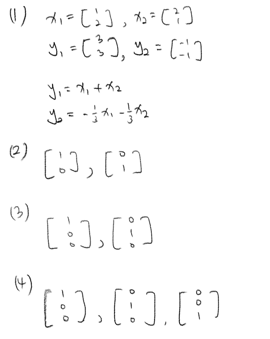 (1) x₁ = [1 2], x₂ = [2 1]
y₁ = [3 3], y₂ = [-1 -1]
y₁ = x₁ + x₂
y₂ = -1/3 x₁ - 1/3 x₂
(2) [1 0], [0 1]
(3) [1 0 0], [0 1 0]
(4) [1 0 0], [0 1 0], [0 0 1]